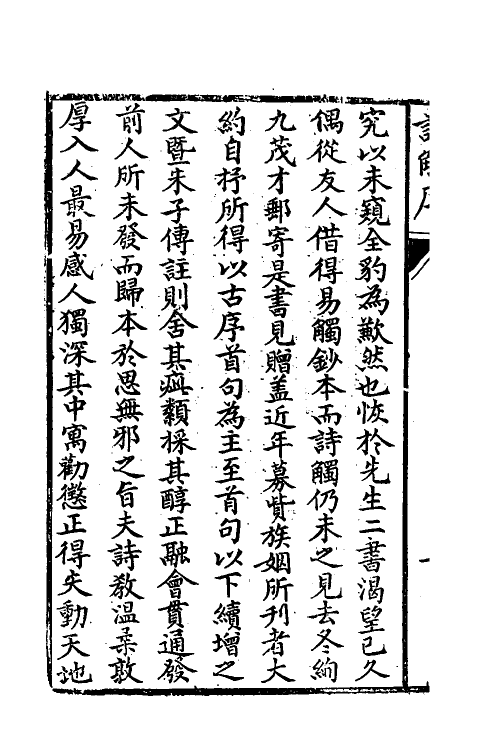 究以未窺全豹為歉然也恢於先生二書渴望已久
偶從友人借得易觸鈔本而詩觸仍未之見去冬絢
九茂才郵寄是書見贈蓋近年募貲族姻所刊者大
約自抒所得以古序首句為主至首句以下續增之
文暨朱子傳註則舍其疵纇採其醇正融會貫通發
前人所未發而歸本於思無邪之旨夫詩教溫柔敦
厚入人最易感人獨深其中寓勸懲正得失動天地